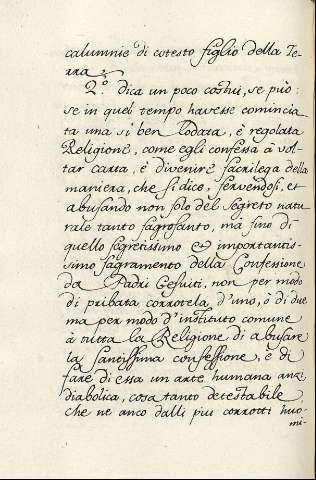 calumnie di cotesto figlio della Te-
rra.
2.º dica un poco costui, se può:
se in quel tempo havesse comincia
ta una sì ben lodata, è regolata
Religione, come egli confessa à vol-
tar carta, è divenire sacrilega della
maniera, che si dice, servendosi, et
abusando non solo del segreto natu
rale tanto sagrosanto, mà fino di
quello segretissimo et importantis-
simo sagramento della Confessione
da Padri Gesuiti, non per modo
di privata corrotela d'uno, ò di due
ma per modo d'instituto comune
à tutta la Religione di abusare
la santissima confessione, è di
fare di essa un arte humana anzi
diabolica, cosa tanto detestabile
che ne anco dalli piu corrotti huo-
mi-